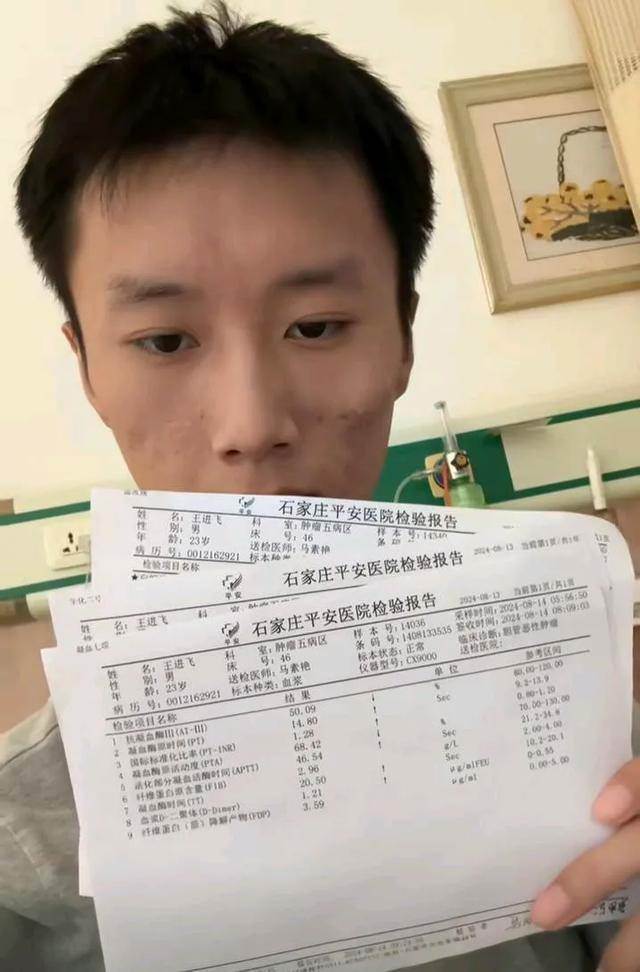 平安
石家庄平安医院检验报告
姓 名: 王进飞
科 室: 肿瘤五病区
样 本 号: 14340
性 别: 男
床 号: 46
年 龄: 23岁
送检医师: 马素艳
病 历 号: 0012162921
标本种类:
检验项目名称
平安
石家庄平安医院检验报告
2024-08-13 当前第1页/共1页
姓 名: 王进飞
凝血七项
平安
石家庄平安医院检验报告
2024-08-13 当前第1页/共1页
姓 名: 王进飞 科 室: 肿瘤五病区 样 本 号: 14036 采样时间: 2024-08-14 05:56:50
性 别: 男 床 号: 46 条 码 号: 1408133535 签收时间: 2024-08-14 08:09:03
年 龄: 23岁 送检医师: 马素艳 标本状态: 正常 临床诊断: 胆管恶性肿瘤
病 历 号: 0012162921 标本种类: 血浆 仪器型号: CX9000 送检医院:
检验项目名称 结 果 单 位 参考区间
1 抗凝血酶III(AT-III) 50.09 ↓ % 60.00-120.00
2 凝血酶原时间(PT) 14.80 ↑ Sec 9.2-13.9
3 国际标准化比率(PT-INR) 1.28 ↑ 0.80-1.20
4 凝血酶原活动度(PTA) 68.42 ↓ % 70.00-130.00
5 活化部分凝血活酶时间(APTT) 46.54 ↑ Sec 21.2-34.8
6 纤维蛋白原含量(FIB) 2.96 g/L 2.00-4.00
7 凝血酶时间(TT) 20.50 ↑ Sec 10.2-20.1
8 血浆D-二聚体(D-Dimer) 1.21 ↑ μg/mlFEU 0-0.55
9 纤维蛋白(原)降解产物(FDP) 3.59 μg/ml 0.00-5.00